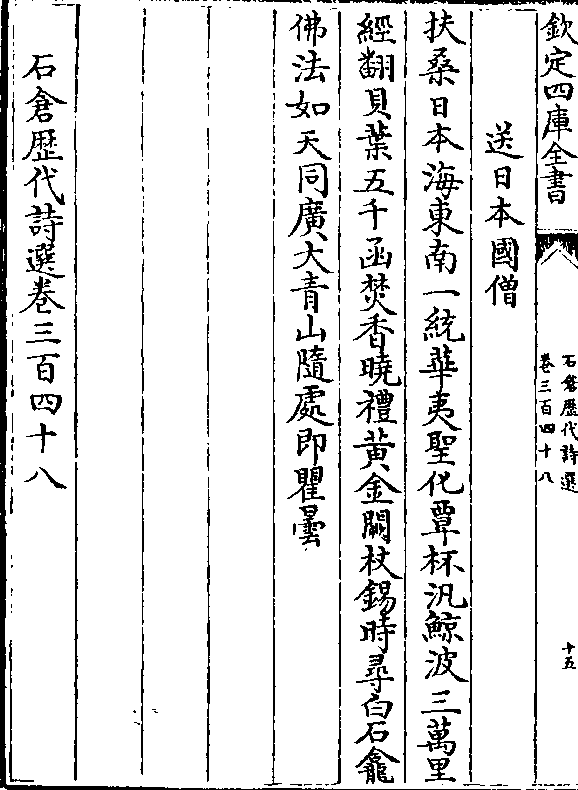 欽定四庫全書
石倉歴代詩選
卷三百四十八
十五
送日本國僧
扶桑日本海東南一統華夷聖化覃杯汎鯨波三萬里
經翻貝葉五千函焚香曉禮黃金闕杖錫時尋白石龕
佛法如天同廣大青山隨處即瞿曇
石倉歴代詩選卷三百四十八